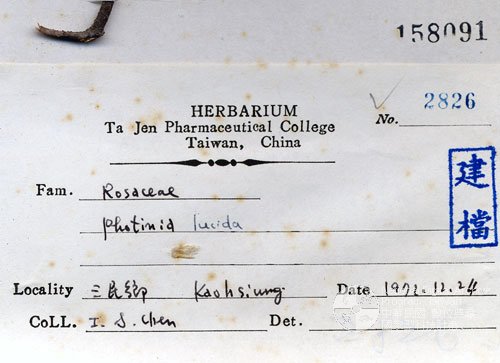 158091
HERBARIUM
Ta Jen Pharmaceutical College
Taiwan, China
No. 2826
建檔
Fam. Rosaceae
Photinia lucida
Locality 三民鄉 Kaohsiung Date 1972.12.24
CoLL. I. S. Chen Det.